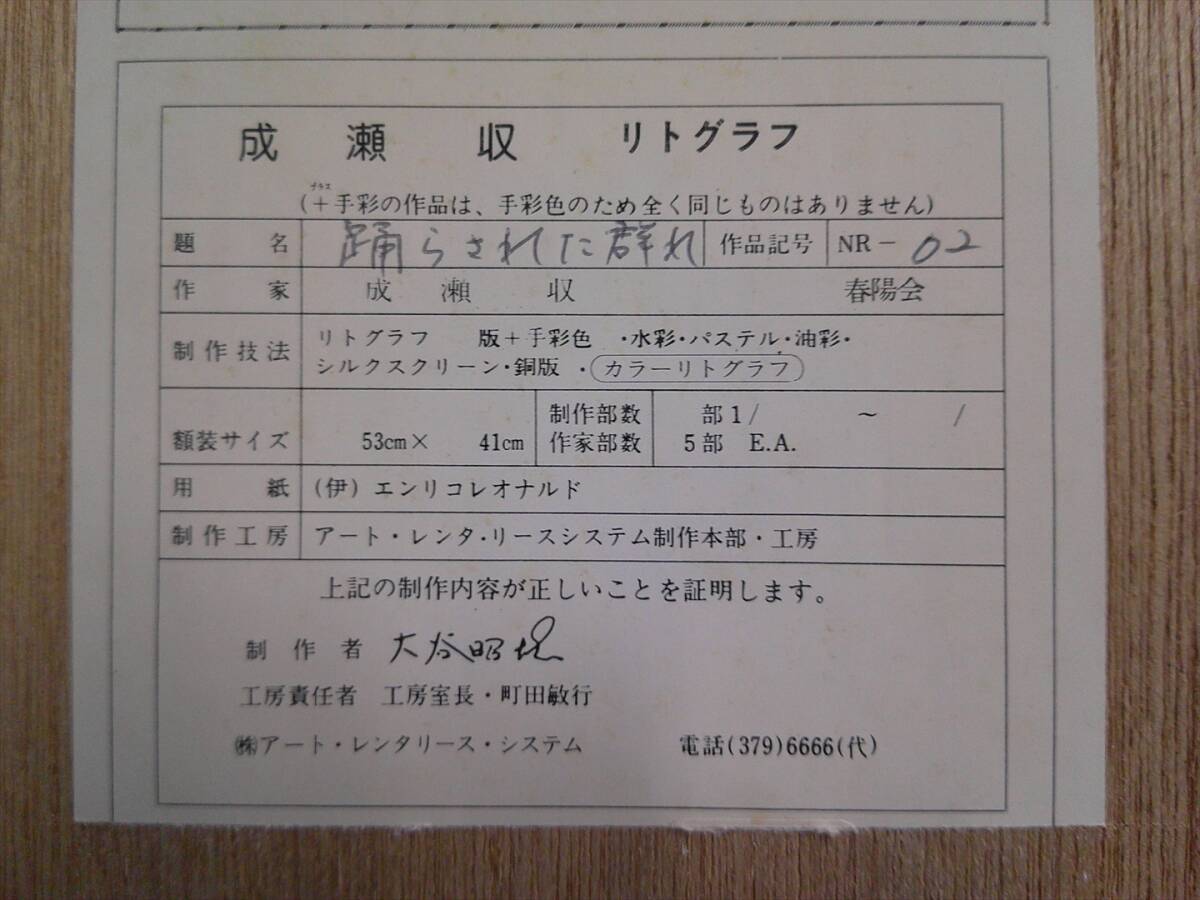 成瀬収 リトグラフ
プラス
(+手彩の作品は、手彩色のため全く同じものはありません)
題名 踊らされた群れ 作品記号 NR-02
作家 成瀬収 春陽会
制作技法 リトグラフ 版+手彩色 ・水彩・パステル・油彩・
シルクスクリーン・銅版 ・カラーリトグラフ
額装サイズ 53cm× 41cm 制作部数 部1/ ~ /
作家部数 5部 E.A.
用紙 (伊)エンリコレオナルド
制作工房 アート・レンタ・リースシステム制作本部・工房
上記の制作内容が正しいことを証明します。
制作者 大谷昭
工房責任者 工房室長・町田敏行
㈱アート・レンタリース・システム 電話(379)6666(代)